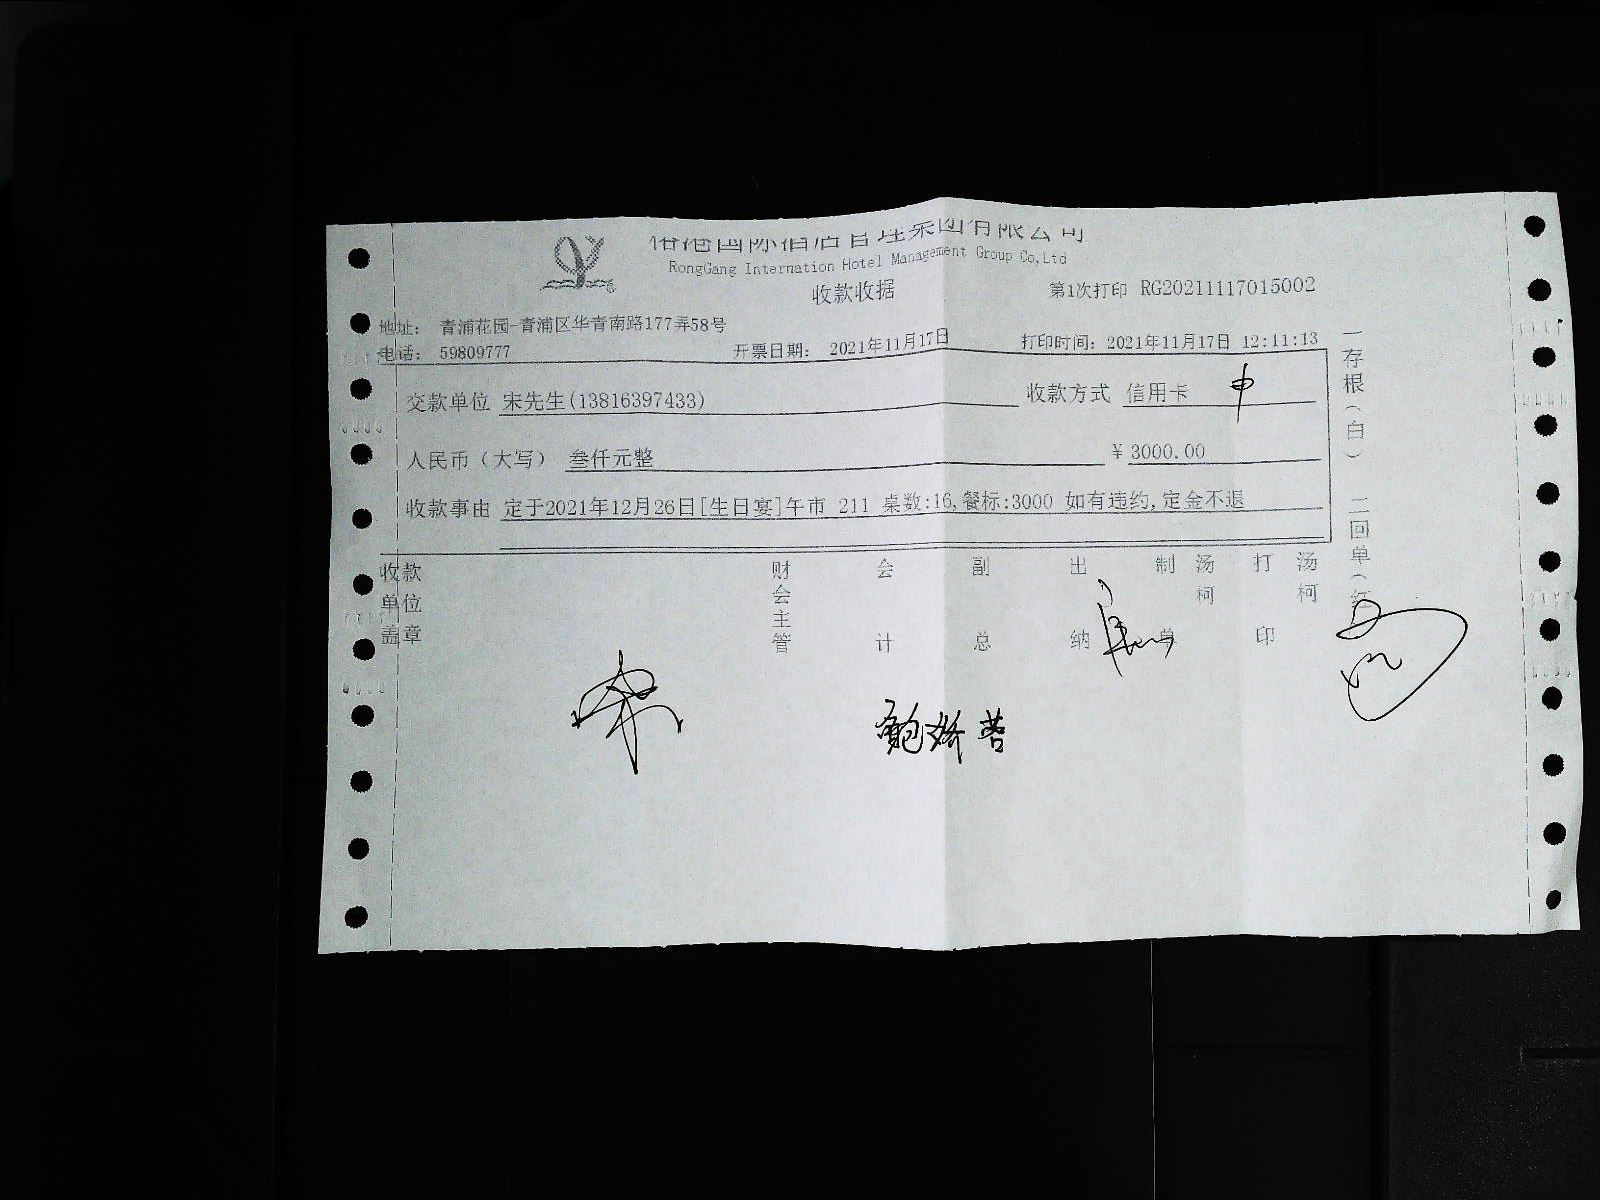 国际酒店管理集团有限公司
RongGang Internation Hotel Management Group Co,Ltd
收款收据
第1次打印 RG20211117015002
地址： 青浦花园-青浦区华青南路177弄58号
电话： 59809777
开票日期： 2021年11月17日
打印时间：2021年11月17日 12:11:13
交款单位 宋先生(13816397433)
收款方式 信用卡 中
人民币（大写） 叁仟元整
¥3000.00
收款事由 定于2021年12月26日[生日宴]午市 211 桌数:16,餐标:3000 如有违约,定金不退
收款单位盖章
财会主管
会计
副总
出纳
制单
汤柯
打印
汤柯
一存根（白） 二回单（红
鲍娇蓉